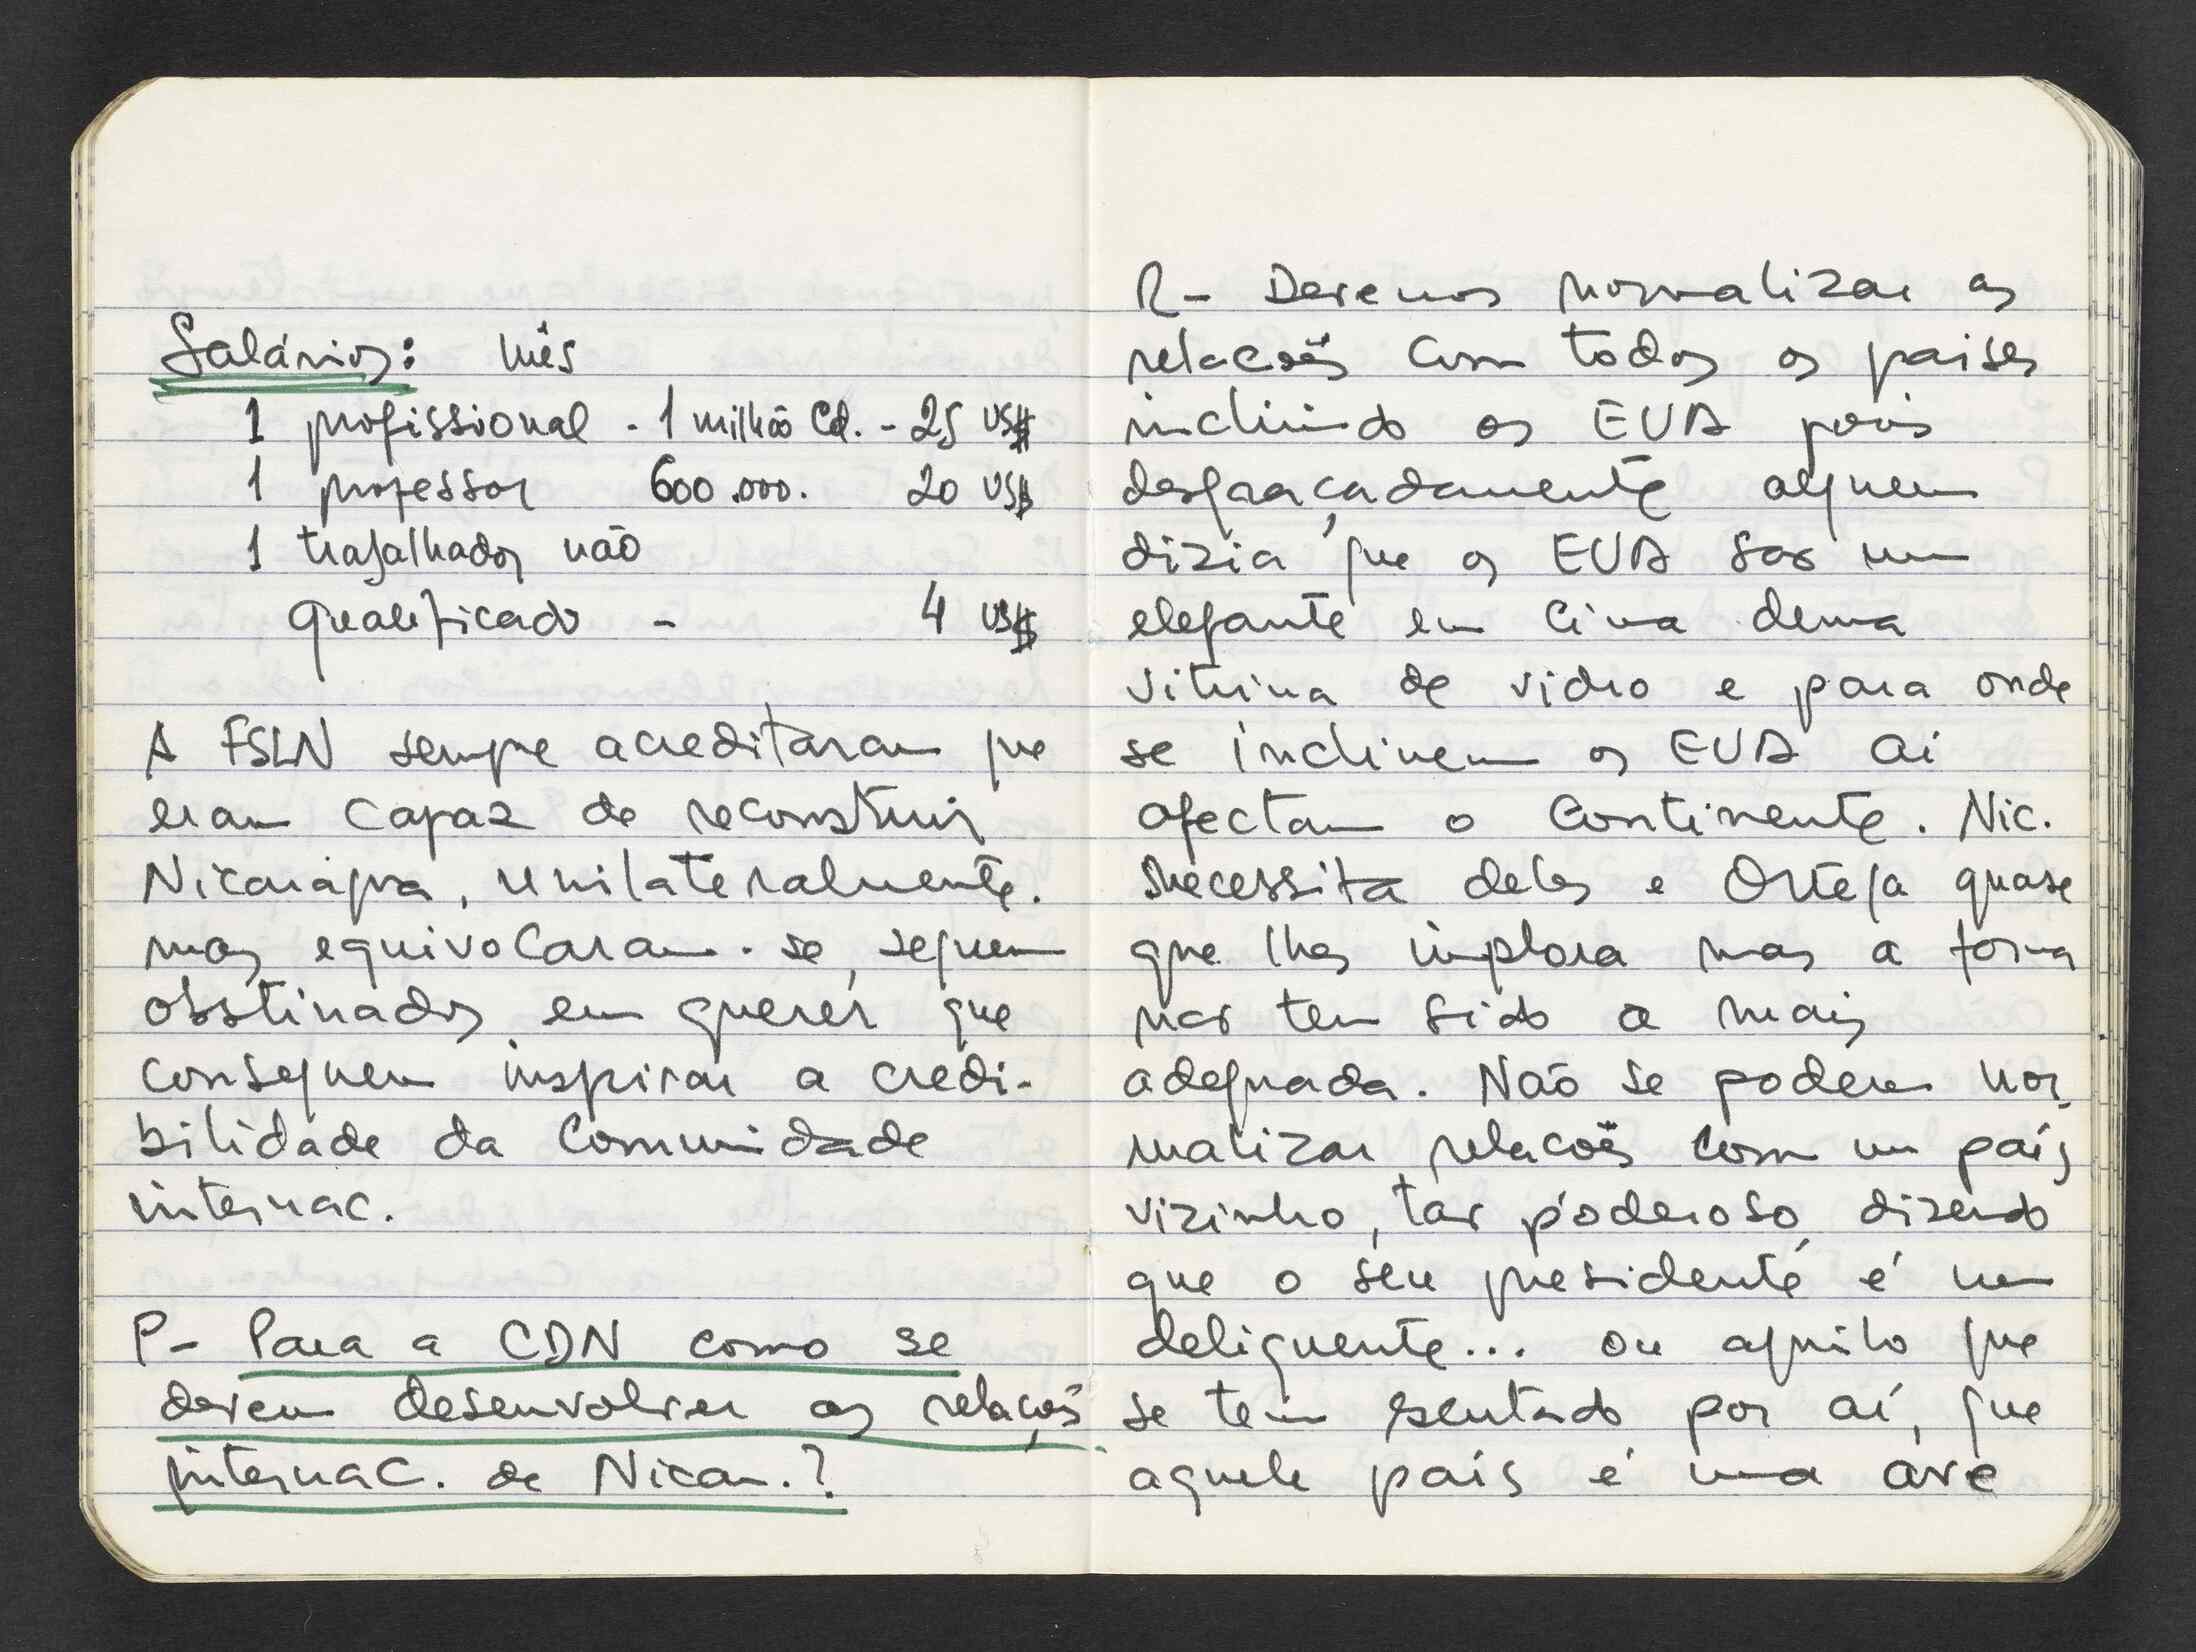 Salários: mês
1 profissional - 1 milhão Cd. - 25 US$
1 professor 600.000. 20 US$
1 trabalhador não
qualificado - 4 US$
A FSLN sempre acreditaram que
eram capaz de reconstruir
Nicarágua, unilateralmente.
mas equivocaram-se, seguem
obstinados em querer que
conseguem inspirar a credi-
bilidade da Comunidade
internac.
P- Para a CDN como se
devem desenvolver as relações
internac. de Nicar.?
R- Devemos normalizar as
relacões com todos os paises
incluindo os EUA pois
desgraçadamente alguem
dizia que os EUA sao um
elefante em cima duma
vitrina de vidro e para onde
se inclinem os EUA ai
afectam o Continente. Nic.
necessita deles e Ortega quase
que lhes implora mas a forma
nao tem sido a mais
adequada. Não se podem nor
malizar relacões com um país
vizinho, tao poderoso, dizendo
que o seu presidente é um
deliquente... ou aquilo que
se tem por aí, que
aquele país é uma ave